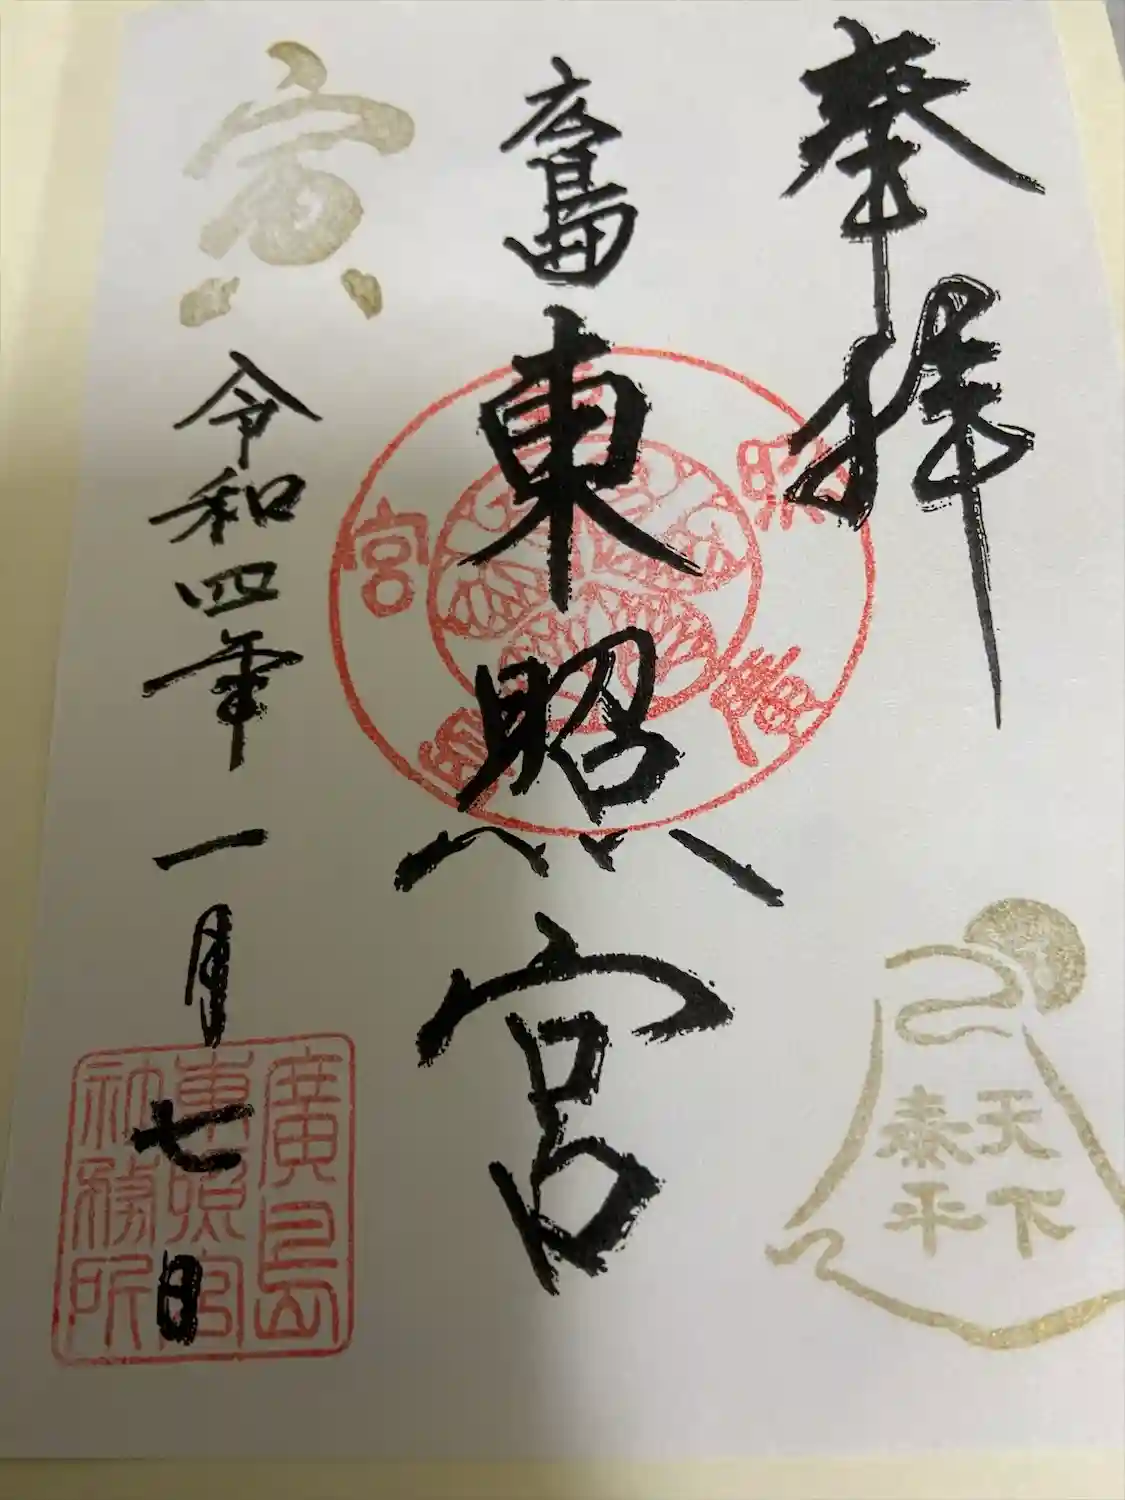 奉拝
天下
泰平
広島
東照宮
廣島東照宮
寅
令和四年一月七日
廣島
東照宮
社務所